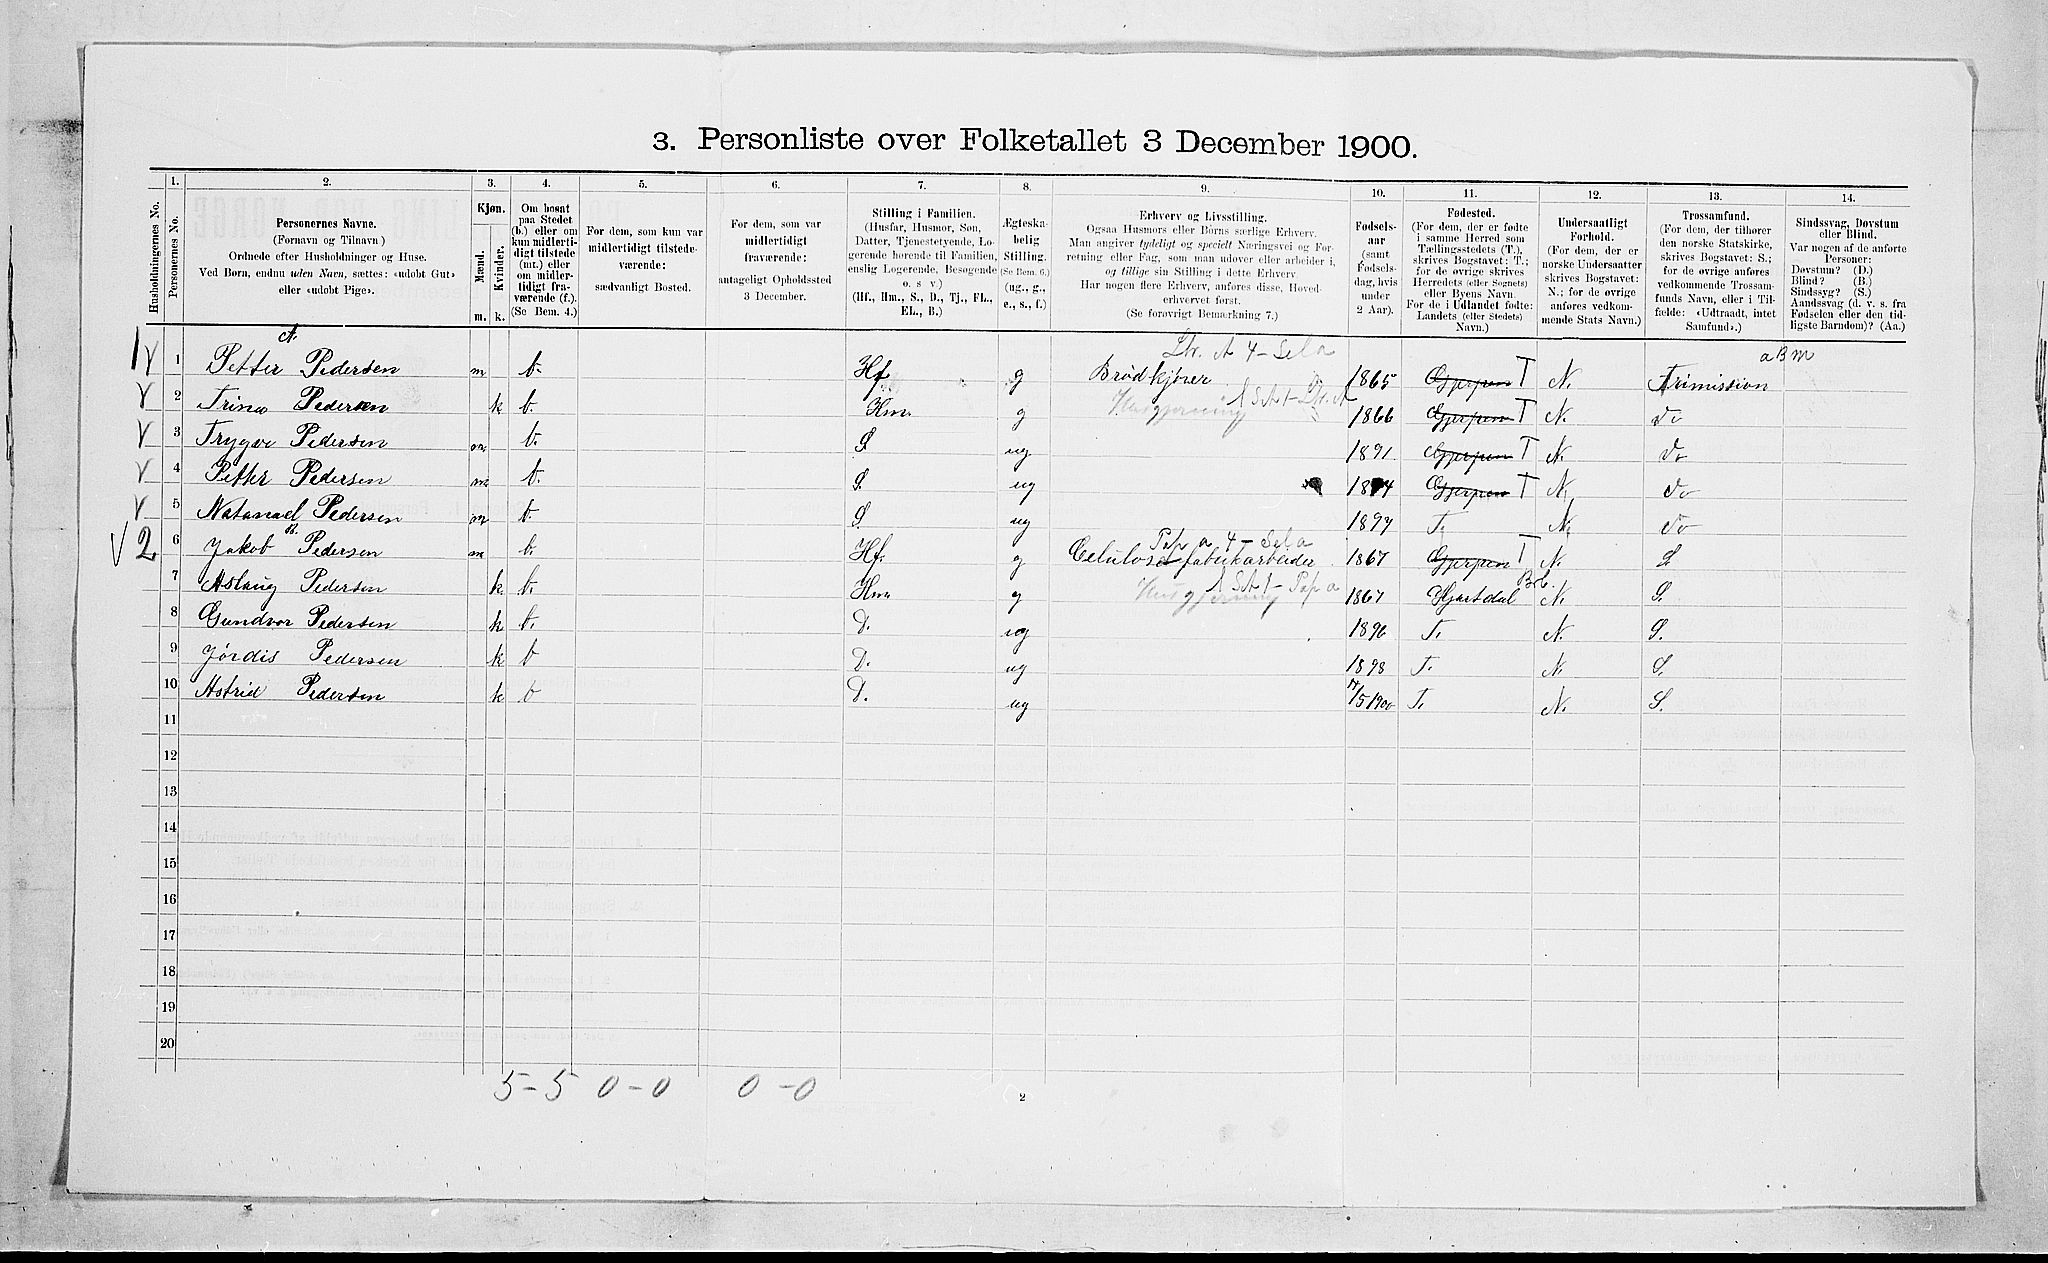 3. Personliste over Folketallet 3 December 1900.
1. 2. 3. 4. 5. 6. 7. 8. 9. 10. 11. 12. 13. 14.
Husholdningernes No.
Personernes No.
Personernes Navne.
(Fornavn og Tilnavn)
Ordnede efter Husholdninger og Huse.
Ved Børn, endnu uden Navn, sættes: «udøbt Gut»
eller «udøbt Pige».
Kjøn.
Mænd.
Kvinder.
m. k.
Om bosat
paa Stedet
(b.) eller om
kun midlerti-
digt tilstede
(mt.) eller
om midler-
tidigt fra-
værende (f.).
(Se Bem. 4.)
For dem, som kun var
midlertidigt tilstede-
værende:
sædvanligt Bosted.
For dem, som var
midlertidigt
fraværende:
antageligt Opholdssted
3 December.
Stilling i Familien.
(Husfar, Husmor, Søn,
Datter, Tjenestetyende, Lo-
gerende hørende til Familien,
enslig Logerende, Besøgende
o. s. v.)
(Hf., Hm., S., D., Tj., FL.,
EL., B.)
Ægteska-
belig
Stilling.
(Se Bem. 6.)
(ug., g.,
e., s., f.)
Erhverv og Livsstilling.
Ogsaa Husmors eller Børns særlige Erhverv.
Man angiver tydeligt og specielt Næringsvei og For-
retning eller Fag, som man udøver eller arbeider i,
og tillige sin Stilling i dette Erhverv.
Har nogen flere Erhverv, anføres disse, Hoved-
erhvervet først.
(Se forøvrigt Bemærkning 7.)
Fødsels-
aar
(samt
Fødsels-
dag, hvis
under
2 Aar).
Fødested.
(For dem, der er fødte
i samme Herred som
Tællingsstedets (T.),
skrives Bogstavet: T.;
for de øvrige skrives
Herredets (eller Sognets)
eller Byens Navn.
For de i Udlandet fødte:
Landets (eller Stedets)
Navn.)
Undersaatligt
Forhold.
(For dem, der er
norske Undersaatter
skrives Bogstavet:
N.; for de øvrige
anføres vedkom-
mende Stats Navn.)
Trossamfund.
(For dem, der tilhører
den norske Statskirke,
skrives Bogstavet: S.;
for de øvrige anføres
vedkommende Trossam-
funds Navn, eller i Til-
fælde: «Udtraadt, intet
Samfund».)
Sindssvag, Døvstum
eller Blind.
Var nogen af de anførte
Personer:
Døvstum? (D.)
Blind? (B.)
Sindssyg? (S.)
Aandssvag (d. v. s. fra
Fødselen eller den tid-
ligste Barndom)? (Aa.)
A. Ltr. A 4 - Sela a B M
1 1 Petter Pedersen m b. Hf g Brødkjører 1865 Gjerpen T N. Frimission
2 Trina Pedersen k b. Hm. g Husgjerning 1866 Gjerpen T N. do
3 Trygve Pedersen m b. S. ug 1891 Gjerpen T N. do
4 Petter Pedersen m b. S. ug Gjerpen T N. do
5 Natanael Pedersen m b. S. ug 1897 T. N. do
Pap a 4 - Sela
2 6 Jakob Pedersen m b. Hf. g Celulosefabrikarbeider 1867 Gjerpen T N. S.
7 Aslaug Pedersen k b. Hm g Husgjerning 1867 Hjartdal Brb. N. S.
8 Gundvor Pedersen k b. D. ug 1896 T. N. S.
9 Jørdis Pedersen k b D. ug 1898 T. N. S.
10 Astrid Pedersen k b D. ug /5 1900 T. N. S.
11
12
13
14
15
16
17
18
19
20
5 - 5 0 - 0 0 - 0
2